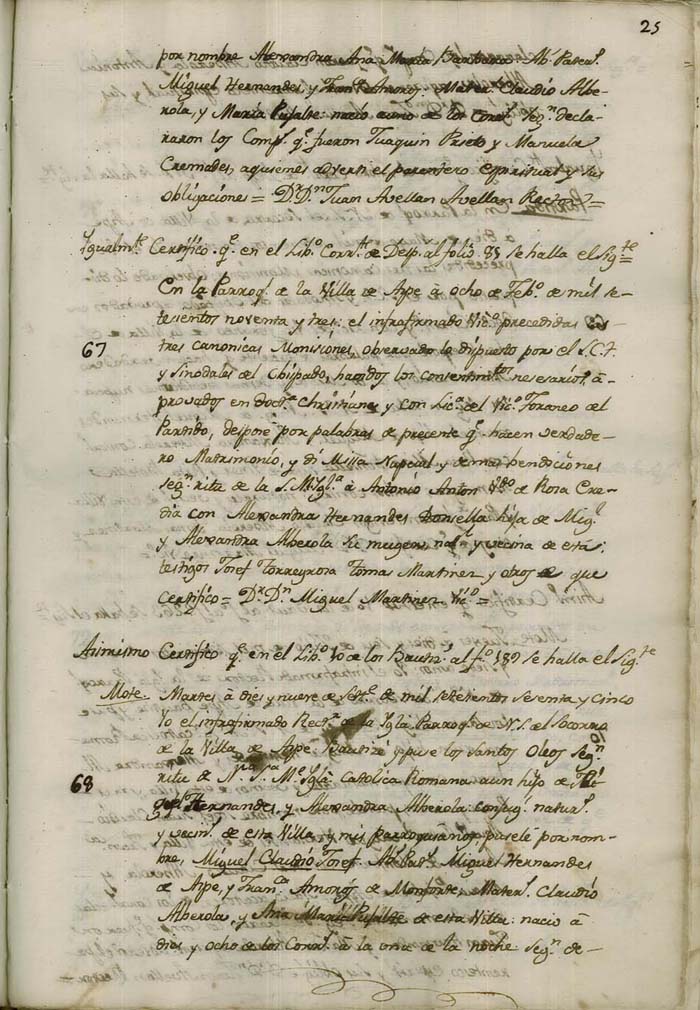 25
por nombre Alexandra Ana María Barbara: Ab.s Pater.s
Miguel Hernandes, y Fran.ca Amoros. Mater.s Claudio Albe-
rola, y María Pujalte: nació a uno de los Corr.s seg.n decla-
raron los Comp.s q.e fueron Juaquin Prieto y Manuela
Cremades, aquienes adverti el parentesco espiritual y sus
obligaciones = D.r D.n Juan Avellan Avellan Rector =
Igualm.te Certifico q.e en el Lib.o Corr.te de Desp. al folio 85 se halla el Sig.te =
En la Parroq.l de la Villa de Aspe à ocho de Feb.o de mil se-
tesientos noventa y tres: el infrafirmado Vic.o precedidas
67
tres canonicas Monisiones, observado lo dispuesto por el S.C.T.
y Sinodales del Obispado, havidos los consentim.tos nesesarios, à-
provados en Doct.a Christiana, y con Lic.a del Vic.o Foraneo del
Partido, desposè por palabras de precente q.e hacen verdade-
ro Matrimonio, y di Missa Nupcial y demas bendiciones
seg.n ritu de la S.M.Igl.a à Antonio Anton V.do de Rosa Cre-
dia con Alexandra Hernandes Donsella hija de Mig.l
y Alexandra Alberola su muger, nat.l y vecina de esta:
testigos Josef Torregrosa Tomas Martinez y otros de que
certifico = D.r D.n Miguel Martinez Vic.o =
Asimismo Certifico q.e en el Lib.o 10 de los Bautis.s al f.o 189 se halla el Sig.te
Mote. Martes à dies y nueve de Sept.e de mil setesientos sesenta y cinco
Yo el infrafirmado Rect.r de la Igl.a Parroq.l de N.S. del Socorro
de la Villa de Aspe: Bautizè y puse los Santos Oleos seg.n
ritu de N.ra S.ta M.e Igl.a Catolica Romana a un hijo de Mi-
68
guel Hernandes, y Alexandra Alberola: conjug.s natur.s
y vecin.s de esta Villa, y mis parroquianos: pusele por nom-
bre, Miguel Claudio Josef. Ab.s Pat.s Miguel Hernandes
de Aspe, y Fran.ca Amoros de Monforte, Mater.s Claudio
Alberola, y Ana Maria Pujalte de esta Villa: nacio à
dies y ocho de los Corr.s à la una de la noche seg.n de-